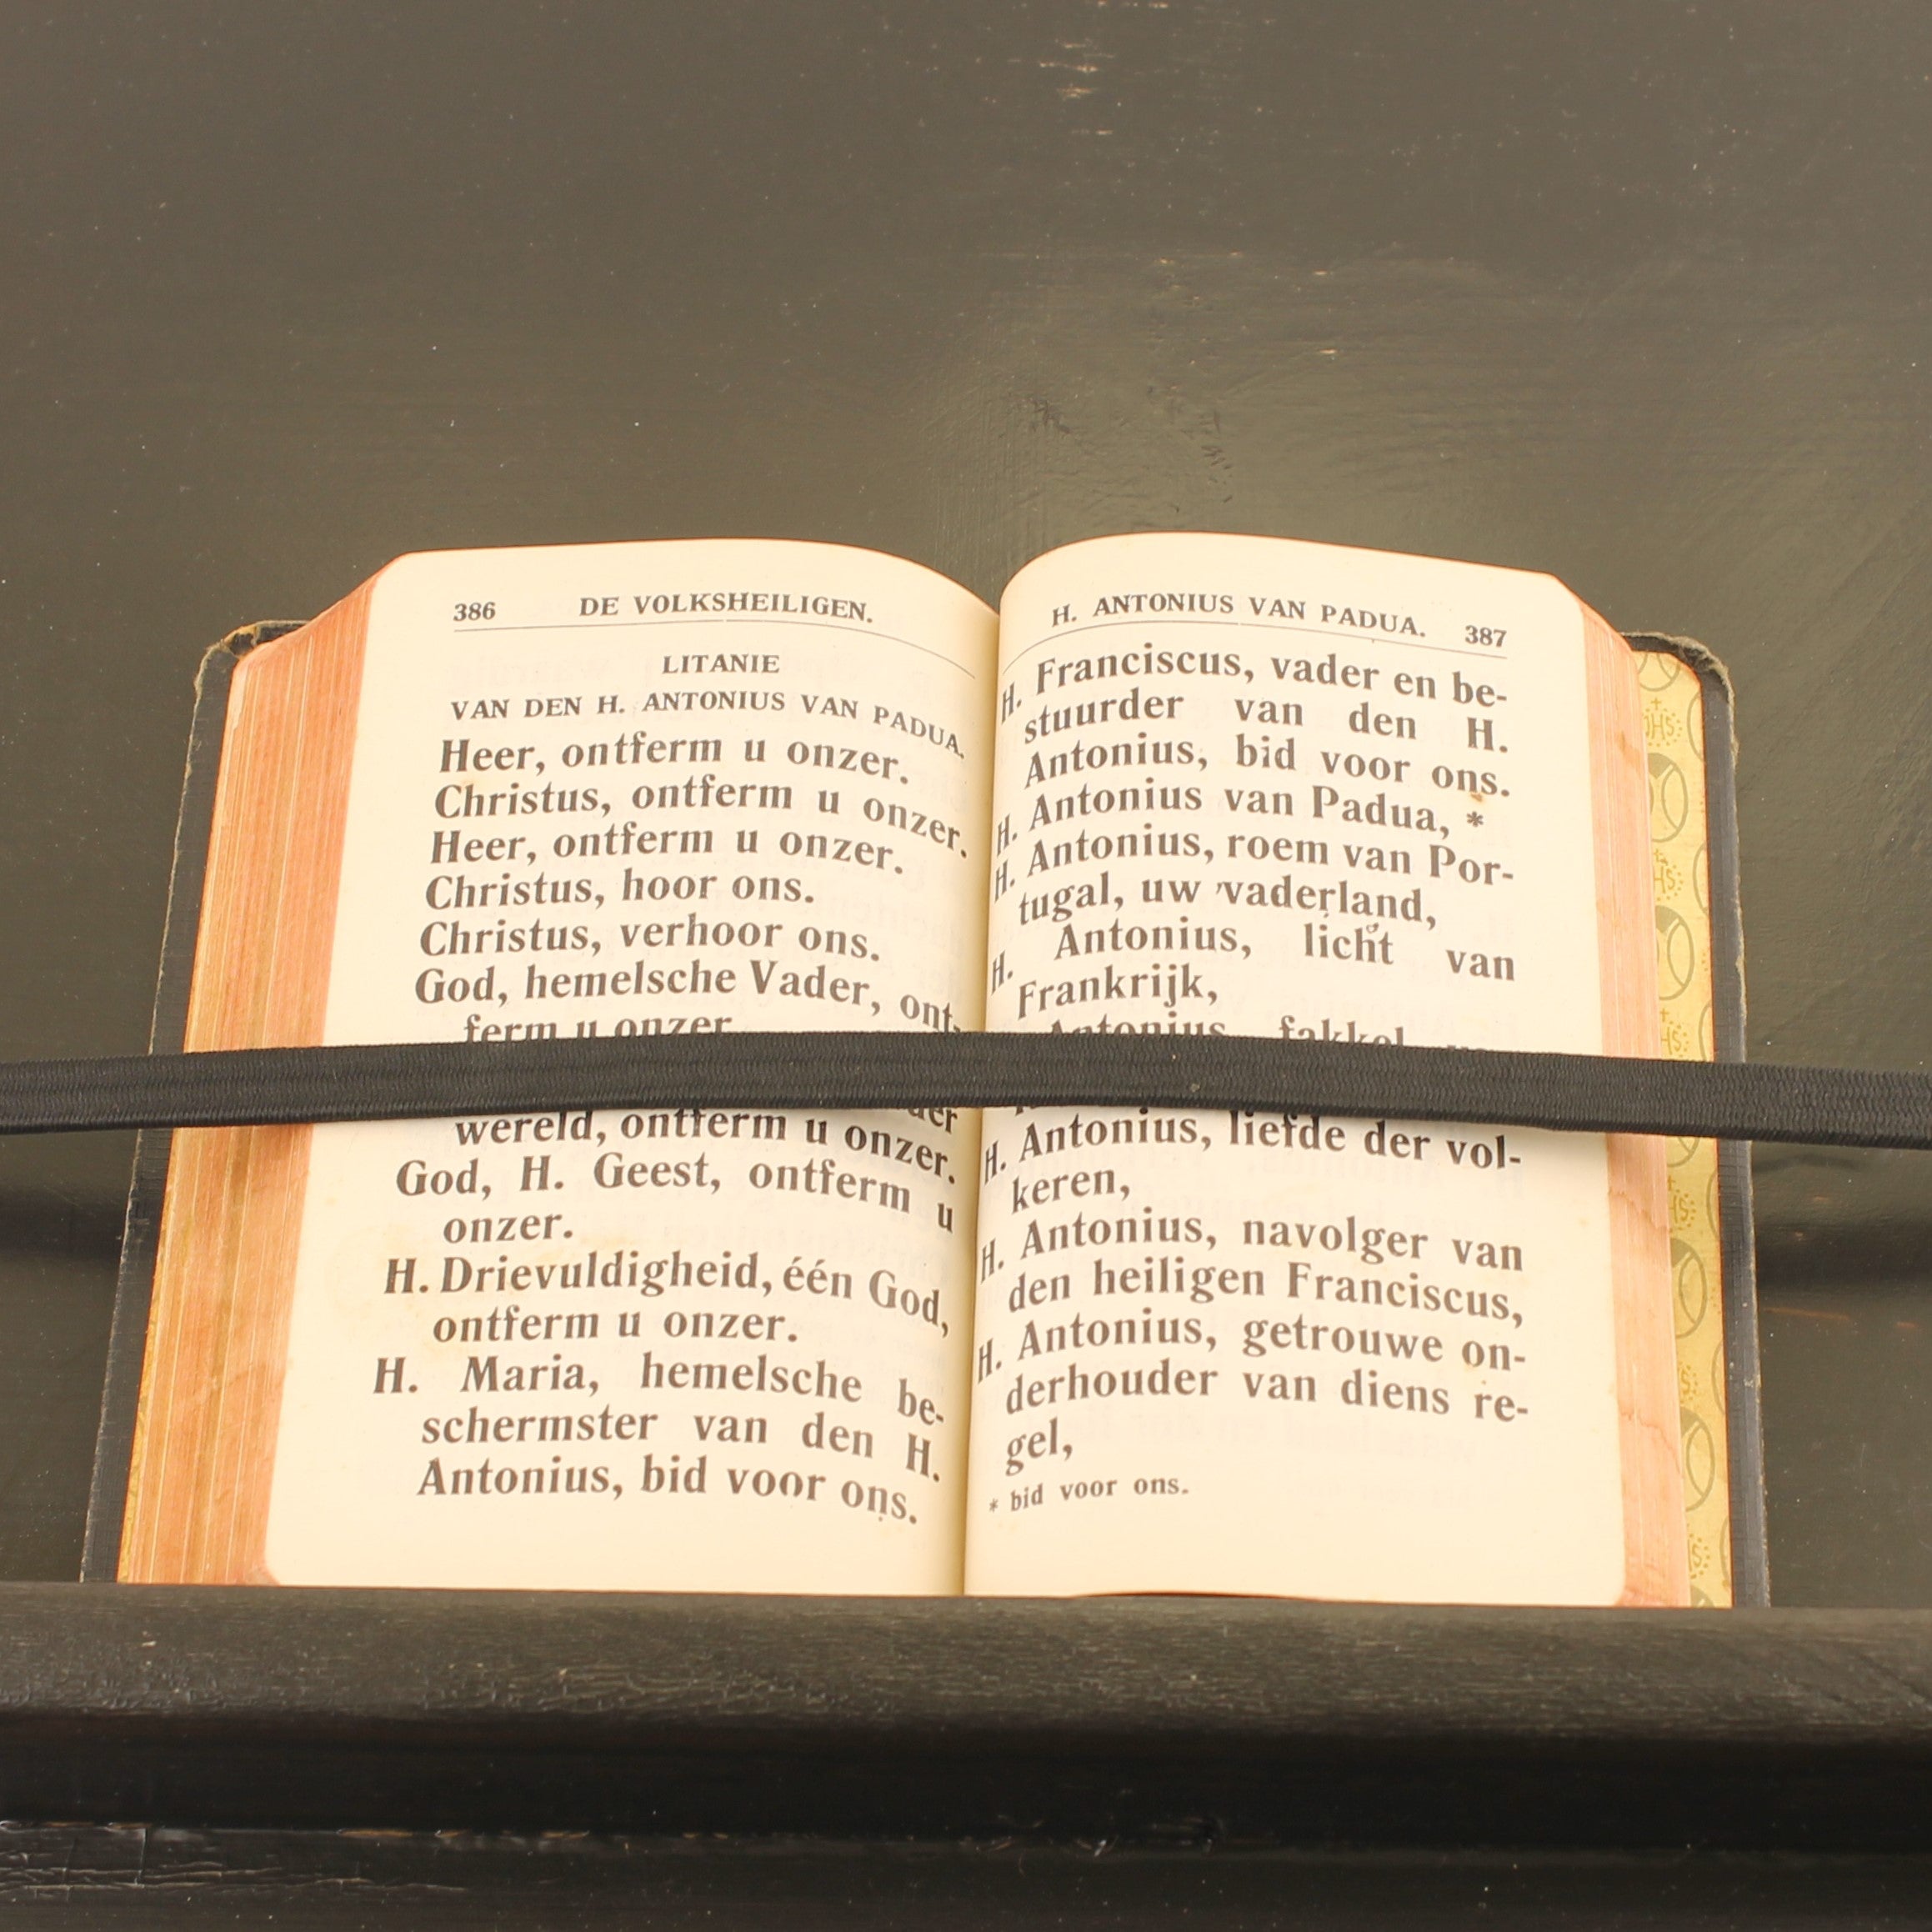 386 DE VOLKSHEILIGEN.
LITANIE
VAN DEN H. ANTONIUS VAN PADUA.
Heer, ontferm u onzer.
Christus, ontferm u onzer.
Heer, ontferm u onzer.
Christus, hoor ons.
Christus, verhoor ons.
God, hemelsche Vader, ont-
ferm u onzer
der
wereld, ontferm u onzer.
God, H. Geest, ontferm u
onzer.
H. Drievuldigheid, één God,
ontferm u onzer.
H. Maria, hemelsche be-
schermster van den H.
Antonius, bid voor ons.
H. ANTONIUS VAN PADUA. 387
H. Franciscus, vader en be-
stuurder van den H.
Antonius, bid voor ons.
H. Antonius van Padua, *
H. Antonius, roem van Por-
tugal, uw vaderland,
H. Antonius, licht van
Frankrijk,
Antonius fakkel
H. Antonius, liefde der vol-
keren,
H. Antonius, navolger van
den heiligen Franciscus,
H. Antonius, getrouwe on-
derhouder van diens re-
gel,
* bid voor ons.